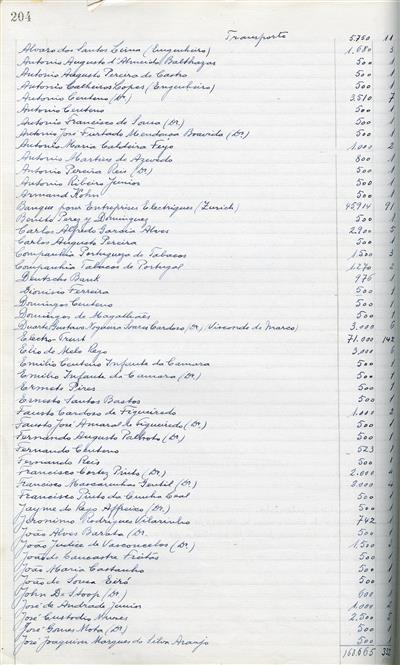 204
Transporte 5.750 11
Alvaro dos Santos Lima (Engenheiro) 1.680 3
Antonio Augusto d'Almeida Balthazar 500 1
Antonio Augusto Pereira de Castro 500 1
Antonio Calheiros Lopes (Engenheiro) 500 1
Antonio Centeno (Dr) 3.510 7
Antonio Centeno 500 1
Antonio Francisco de Sousa (Dr) 500 1
Antonio José Furtado Mendonça Boavida (Dr) 500 1
Antonio Maria Caldeira Feyo 1.000 2
Antonio Martins de Azevedo 800 1
Antonio Pereira Reis (Dr) 500 1
Antonio Ribeiro Junior 500 1
Armand Kohn 500 1
Banque pour Entreprises Electriques (Zurich) 45.914 91
Benito Perez y Dominguez 500 1
Carlos Alfredo Garcia Alves 2.900 5
Carlos Augusto Pereira 500 1
Companhia Portugueza de Tabacos 1.500 3
Companhia Tabacos de Portugal 1.270 2
Deutsche Bank 976 1
Dionisio Ferreira 500 1
Domingos Centeno 500 1
Domingos de Magalhães 500 1
Duarte Gustavo Nogueira Soares Cardoso (Dr) (Visconde do Marco) 3.000 6
Electro-Trust 71.000 142
Elio de Melo Rego 3.000 6
Emilio Centeno Infante da Camara 500 1
Emilio Infante da Camara (Dr) 500 1
Ermete Pires 500 1
Ernesto Santos Bastos 500 1
Fausto Cardoso de Figueiredo 1.000 2
Fausto José Amaral de Figueiredo (Dr) 500 1
Fernando Augusto (Dr) 500 1
Fernando Centeno 523 1
Fernando Reis 500 1
Francisco Cortez Pinto (Dr) 2.000 4
Francisco Mascarenhas Gentil (Dr) 2.000 4
Francisco Pinto da Cunha Leal 500 1
Jayme do Rego Affreixo (Dr) 500 1
Jeronimo Rodrigues Vilarinho 742 1
João Alves Barata (Dr) 500 1
João Judice de Vasconcelos (Dr) 1.500 3
João de Lancastre Freitas 500 1
João Maria Castanho 500 1
João de Sousa Eiró 500 1
John De Stoop (Dr) 600 1
José de Andrade Junior 1.000 2
José Custodio Nunes 2.500 5
José Gomes Mota (Dr) 500 1
José Joaquim Marques da Silva Araujo 500 1